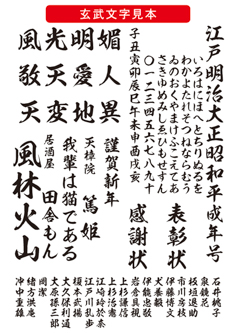 玄武文字見本
江戸明治大正昭和平成年号
いろはにほへとちりぬるを
わかよたれそつねならむう
ゐのおくやまけふこえてあ
さきゆめみしゑひもせすん
〇一二三四五六七八九十
子丑寅卯辰巳午未申酉戌亥
媚人異
明愛地
光天変
風敬天
表彰状
感謝状
謹賀新年
天璋院 篤姫
我輩は猫である
居酒屋 田舎もん
風林火山
石井桃子
泉鏡花
板垣退助
市川房枝
伊藤博文
犬養毅
伊能忠敬
岩倉具視
上杉謙信
上杉治憲
江崎玲於奈
江戸川乱歩
榎本武揚
大久保利通
大原孫三郎
緒方洪庵
沖中重雄